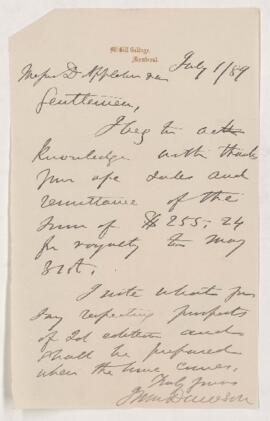 McGill College,
Montreal.
July 1/89
Messrs D Appleton & Co
Gentlemen,
I beg to ack
knowledge with thanks
your of sales and
remittance of the
sum of $255.24
for royalty to may
31st.
I note what you
say respecting prospects
of 2d edition and
shall be prepared
when the time comes.
Truly yours
J Wm Dawson